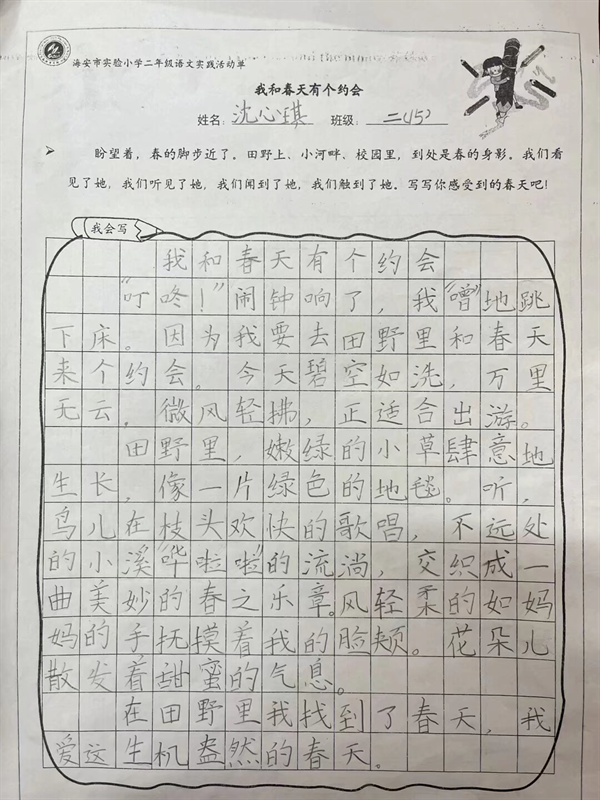 海安市实验小学二年级语文实践活动单
我和春天有个约会
姓名：沈心琪 班级：二(15)
➤ 盼望着，春的脚步近了。田野上、小河畔、校园里，到处是春的身影。我们看
见了她，我们听见了她，我们闻到了她，我们触到了她。写写你感受到的春天吧！
我会写
我和春天有个约会
“叮咚！”闹钟响了，我“噌”地跳
下床。因为我要去田野里和春天
来个约会。今天碧空如洗，万里
无云，微风轻拂，正适合出游。
田野里，嫩绿的小草肆意地
生长，像一片绿色的地毯。听，
鸟儿在枝头欢快的歌唱，不远处
的小溪“哗啦啦”的流淌，交织成一
曲美妙的春之乐章。风轻柔的如妈
妈的手抚摸着我的脸颊。花朵儿
散发着甜蜜的气息。
在田野里我找到了春天，我
爱这生机盎然的春天。